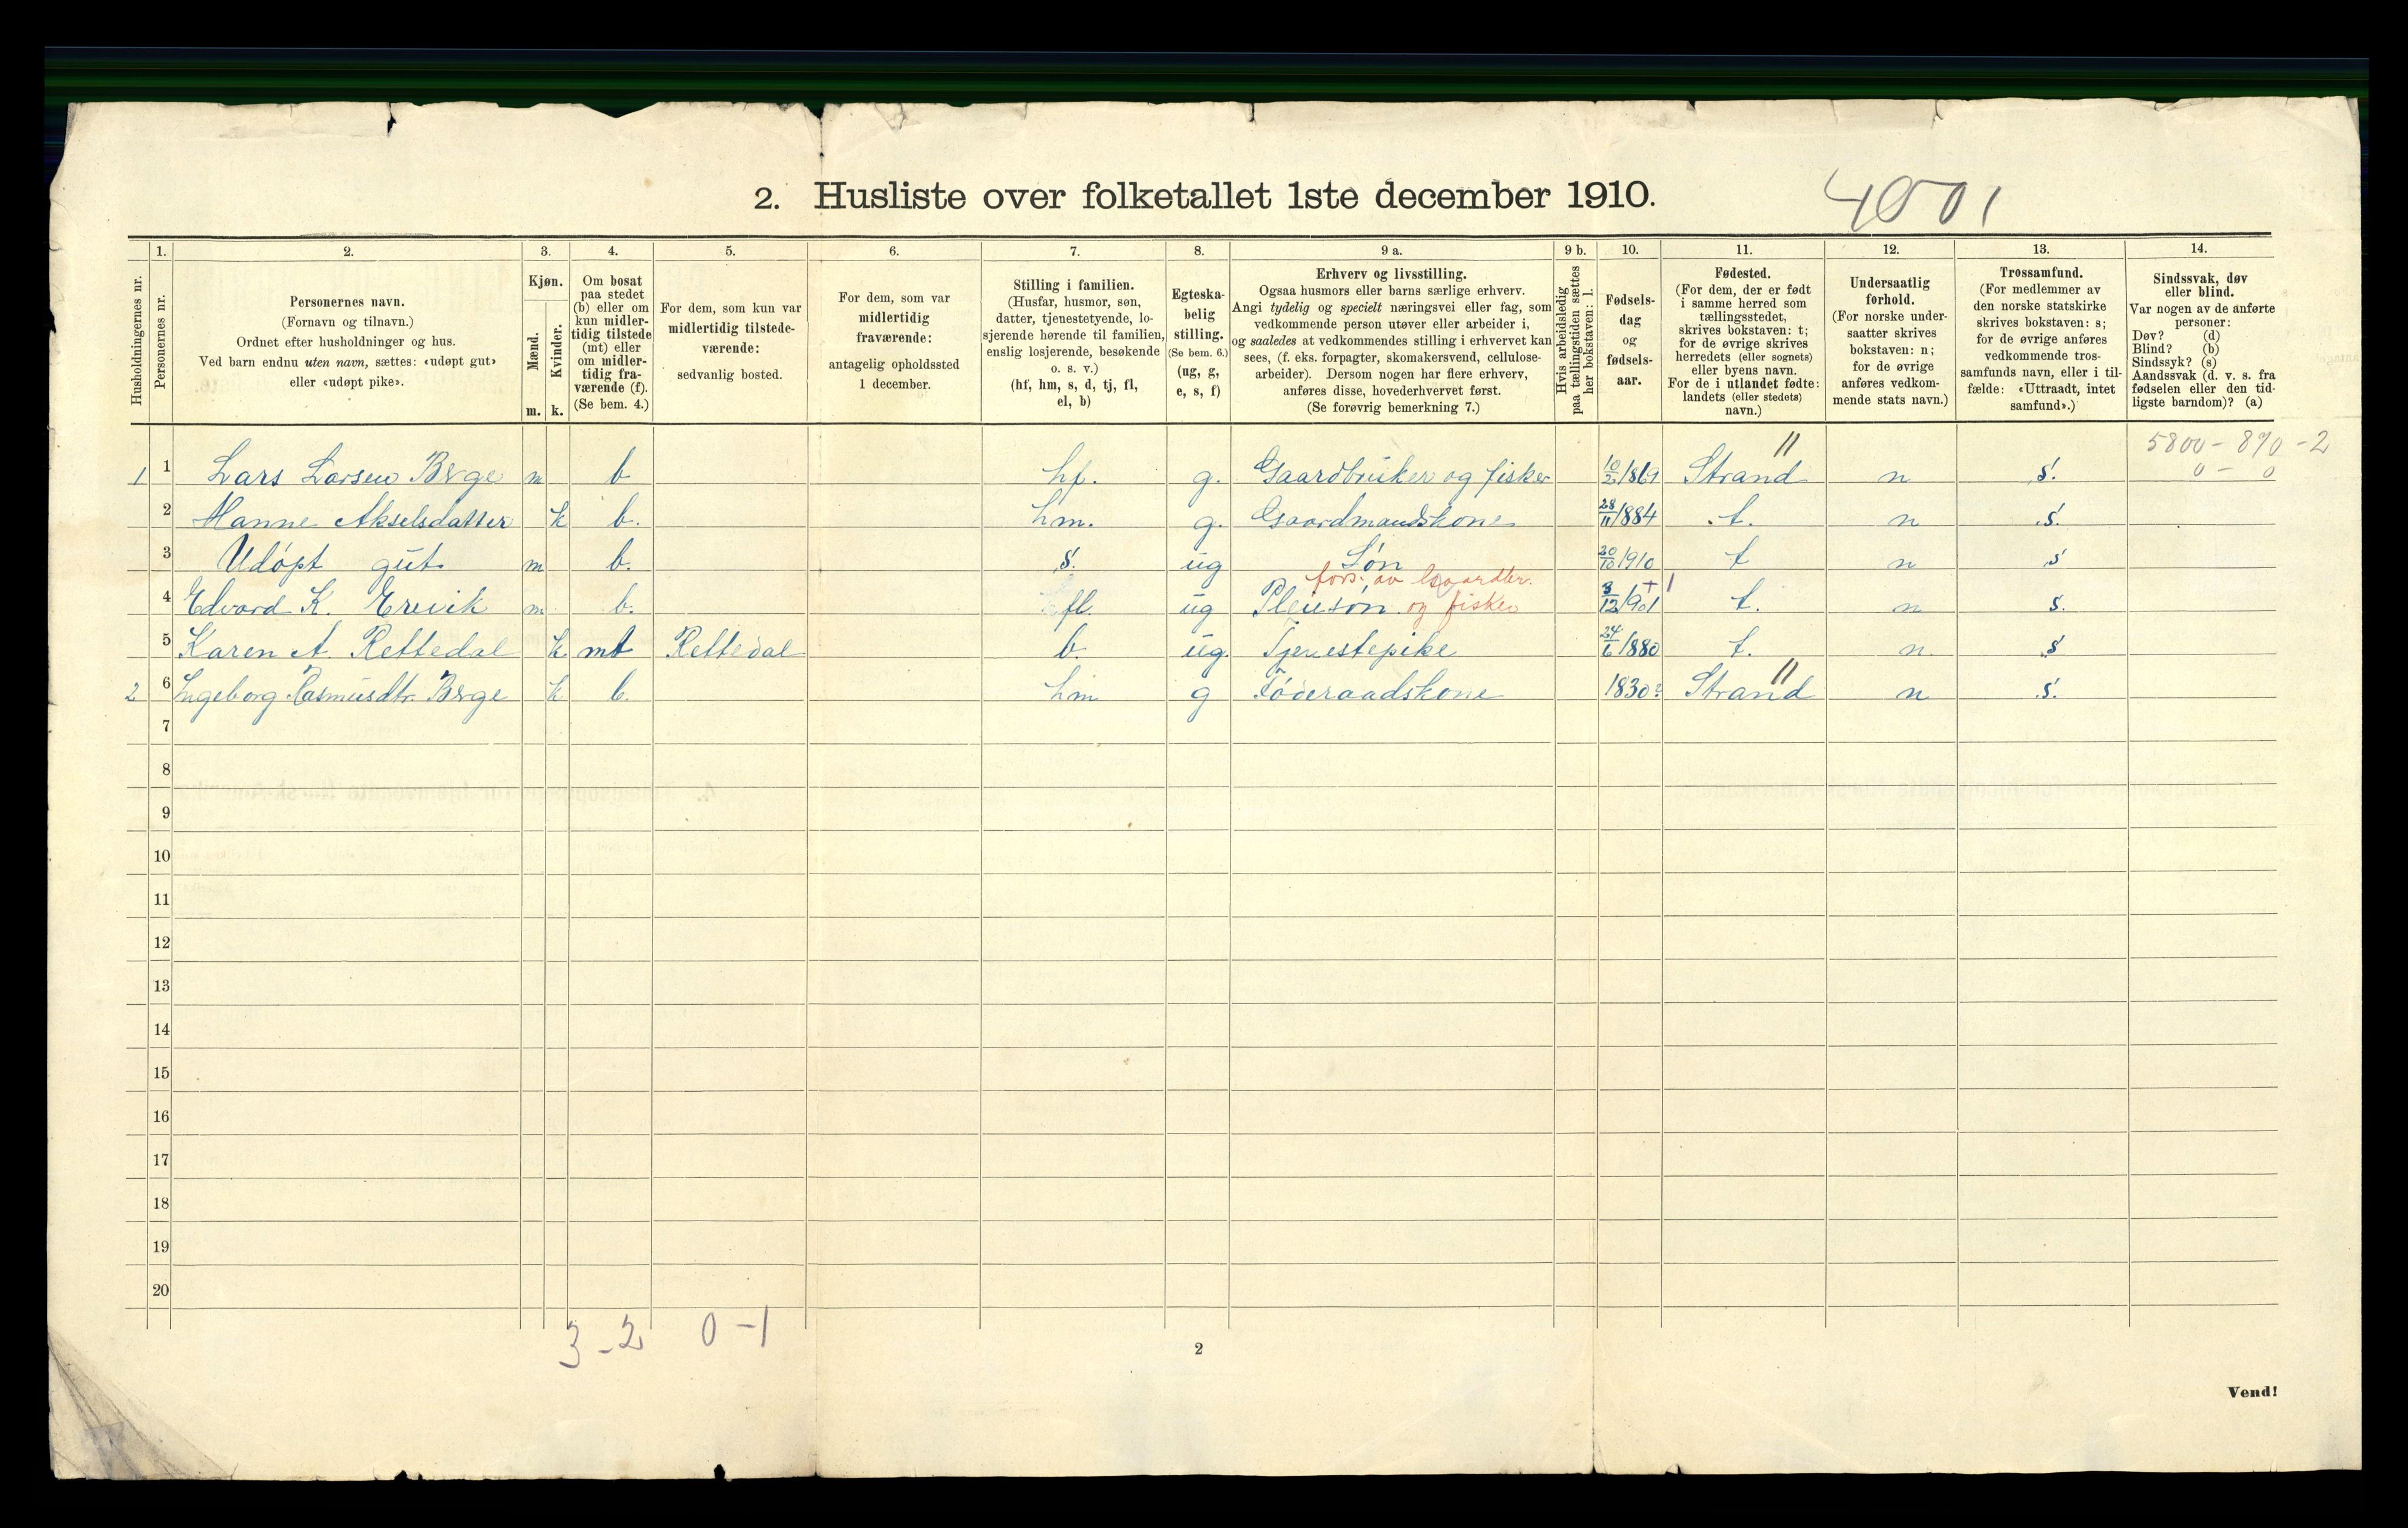 2. Husliste over folketallet 1ste december 1910.
4001
Husholdningernes nr.
1.
Personernes nr.
2.
Personernes navn.
(Fornavn og tilnavn.)
Ordnet efter husholdninger og hus.
Ved barn endnu uten navn, sættes: «udøpt gut»
eller «udøpt pike».
3.
Kjøn.
Mænd.
Kvinder.
m. k.
4.
Om bosat
paa stedet
(b) eller om
kun midler-
tidig tilstede
(mt) eller
om midler-
tidig fra-
værende (f).
(Se bem. 4.)
5.
For dem, som kun var
midlertidig tilstede-
værende:
sedvanlig bosted.
6.
For dem, som var
midlertidig
fraværende:
antagelig opholdssted
1 december.
7.
Stilling i familien.
(Husfar, husmor, søn,
datter, tjenestetyende, lo-
sjerende hørende til familien,
enslig losjerende, besøkende
o. s. v.)
(hf, hm, s, d, tj, fl,
el, b)
8.
Egteska-
belig
stilling.
(Se bem. 6.)
(ug, g,
e, s, f)
9 a.
Erhverv og livsstilling.
Ogsaa husmors eller barns særlige erhverv.
Angi tydelig og specielt næringsvei eller fag, som
vedkommende person utøver eller arbeider i,
og saaledes at vedkommendes stilling i erhvervet kan
sees, (f. eks. forpagter, skomakersvend, cellulose-
arbeider). Dersom nogen har flere erhverv,
anføres disse, hovederhvervet først.
(Se forøvrig bemerkning 7.)
9 b.
Hvis arbeidsledig
paa tællingstiden sættes
her bokstaven: l.
10.
Fødsels-
dag
og
fødsels-
aar.
11.
Fødested.
(For dem, der er født
i samme herred som
tællingsstedet,
skrives bokstaven: t;
for de øvrige skrives
herredets (eller sognets)
eller byens navn.
For de i utlandet fødte:
landets (eller stedets)
navn.)
12.
Undersaatlig
forhold.
(For norske under-
saatter skrives
bokstaven: n;
for de øvrige
anføres vedkom-
mende stats navn.)
13.
Trossamfund.
(For medlemmer av
den norske statskirke
skrives bokstaven: s;
for de øvrige anføres
vedkommende tros-
samfunds navn, eller i til-
fælde: «Uttraadt, intet
samfund».)
14.
Sindssvak, døv
eller blind.
Var nogen av de anførte
personer:
Døv? (d)
Blind? (b)
Sindssyk? (s)
Aandssvak (d. v. s. fra
fødselen eller den tid-
ligste barndom)? (a)
5800 - 870 - 2
0 - 0
1 1 Lars Larsen Berge m b hf. g. Gaardbruker og fisker 10/2 1869 Strand n s.
2 Hanne Akselsdatter k b. hm. g. Gaardmandskone 28/11 1884 t. n s.
3 Udøpt gut m b. s. ug Søn 20/10 1910 t n s
fors. av Gaardbr.
4 Edvard K. Erevik m b. fl. ug Pleiesøn og fisker 3/12 1901 t. n s.
5 Karen A. Rettedal k mt Rettedal b. ug. Tjenestepike 24/6 1880 t. n. s
2 6 Ingeborg Rasmusdtr. Berge k b. hm g Føderaadskone 1830? Strand n s.
7
8
9
10
11
12
13
14
15
16
17
18
19
20
3 - 2 0 - 1
2
Vend!